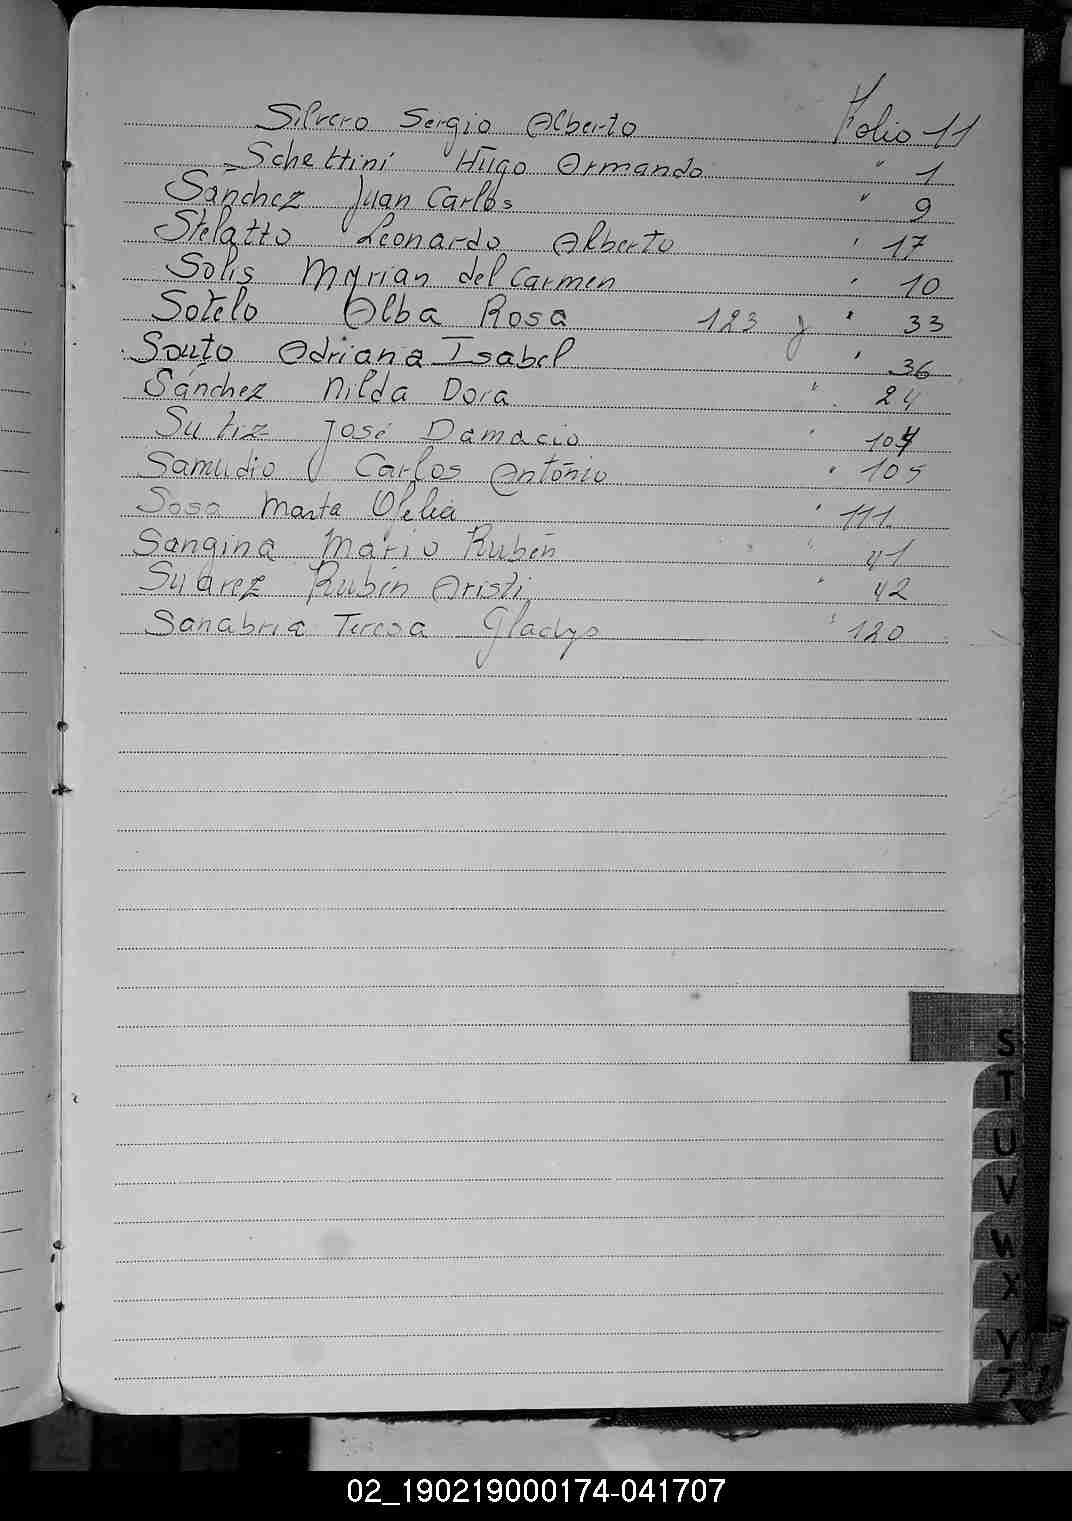 Silvero Sergio Alberto Folio 11
Schettini Hugo Ormando " 1
Sánchez Juan Carlos " 9
Stelatto Leonardo Alberto " 17
Solis Myrian del Carmen " 10
Sotelo Alba Rosa 123 y " 33
Souto Adriana Isabel " 36
Sánchez Nilda Dora " 24
José Damacio " 104
Samudio Carlos Antonio " 105
Sosa Marta Ofelia " 111
Sangina Mario Rubén " 41
Suarez Rubén Aristi " 42
Sanabria Teresa Gladys " 120
S
T
U
V
W
X
Y
Z
02_190219000174-041707